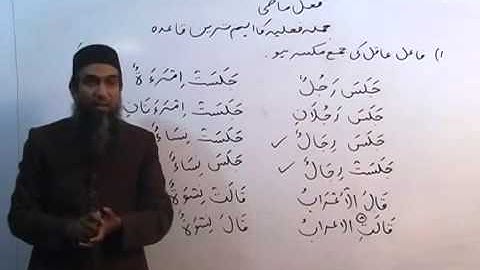 فعل ماضی
جملہ فعلیہ کا اہم ترین قاعدہ
۱) فاعل عاقل کی جمع مکسر ہو
جَلَسَ رَجُلٌ جَلَسَتْ اِمْرَءَةٌ
جَلَسَ رَجُلَانِ جَلَسَتْ اِمْرَءَتَانِ
جَلَسَ رِجَالٌ ✓ جَلَسَتْ نِسَاءٌ
جَلَسَتْ رِجَالٌ ✓ جَلَسَ نِسَاءٌ
قَالَ الْأَعْرَابُ قَالَتْ نِسْوَةٌ
قَالَتِ الْاَعْرَابُ قَالَ نِسْوَةٌ